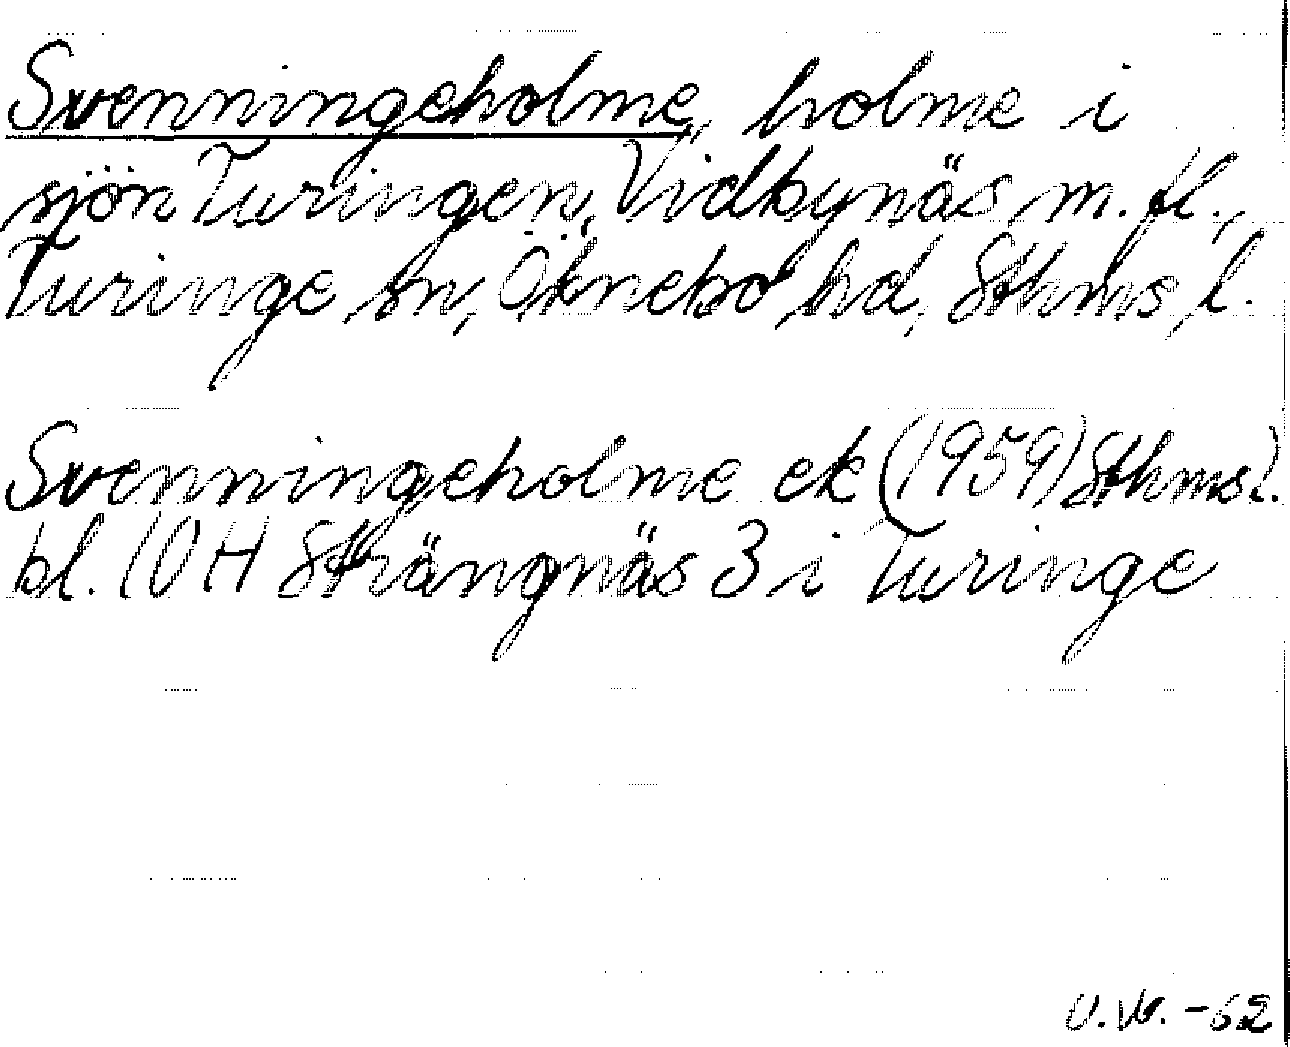 Svenningeholme, holme i
sjön Turingen, Vidbynäs m. fl.,
Turinge sn, Öknebo hd, Sthms l.
Svenningeholme ek (1959) Sthms l.
bl. 10H Strängnäs 3 i Turinge
-62